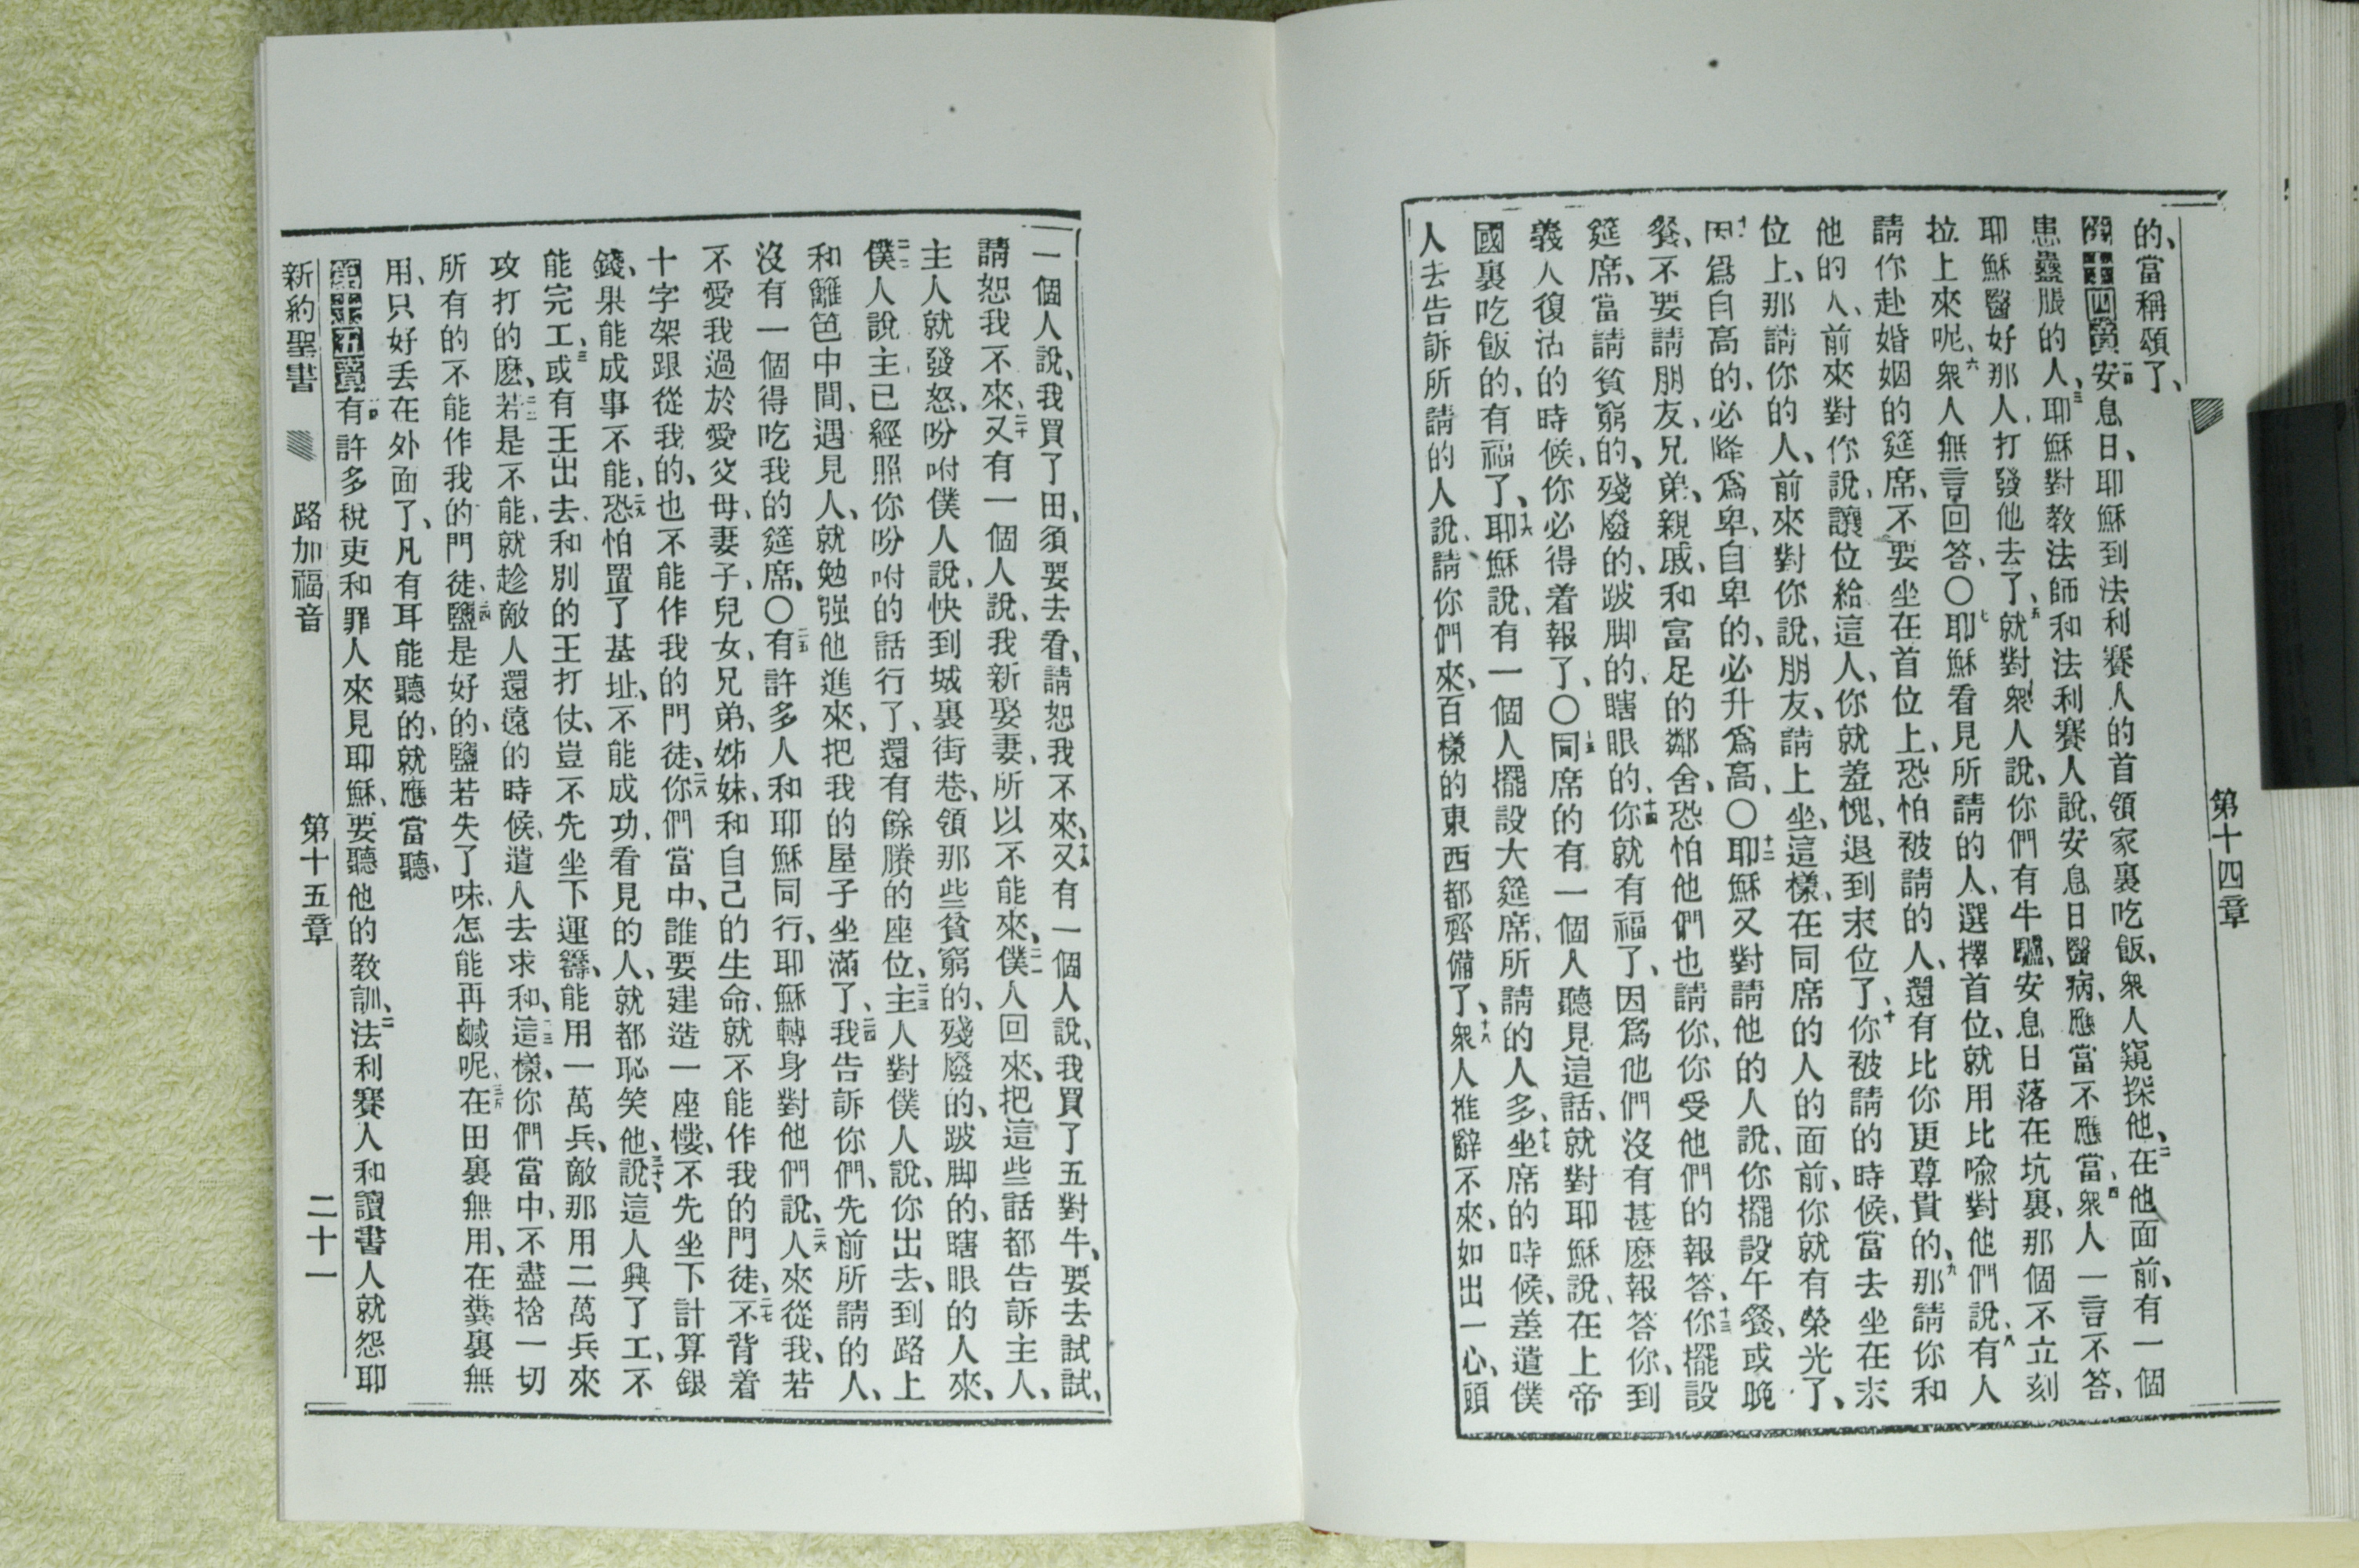 第十四章
的、當稱頌了、
第十四章一安息日、耶穌到法利賽人的首領家裏吃飯、衆人窺探他、二在他面前、有一個
患蠱脹的人、三耶穌對教法師和法利賽人說、安息日醫病、應當不應當、四衆人一言不答、
耶穌醫好那人、打發他去了、五就對衆人說、你們有牛驢、安息日落在坑裏、那個不立刻
拉上來呢、六衆人無言回答、〇七耶穌看見所請的人、選擇首位、就用比喩對他們說、八有人
請你赴婚姻的筵席、不要坐在首位上、恐怕被請的人、還有比你更尊貴的、九那請你和
他的人、前來對你說、讓位給這人、你就羞愧、退到末位了、十你被請的時候、當去坐在末
位上、那請你的人、前來對你說、朋友、請上坐、這樣、在同席的人的面前、你就有榮光了、
十一因爲自高的、必降爲卑、自卑的、必升爲高、〇十二耶穌又對請他的人說、你擺設午餐、或晚
餐、不要請朋友、兄弟、親戚、和富足的鄰舍、恐怕他們也請你、你受他們的報答、十三你擺設
筵席、當請貧窮的、殘廢的、跛脚的、瞎眼的、十四你就有福了、因爲他們沒有甚麽報答你、到
義人復活的時候、你必得着報了、〇十五同席的有一個人聽見這話、就對耶穌說、在上帝
國裏吃飯的、有福了、十六耶穌說、有一個人擺設大筵席、所請的人多、十七坐席的時候、差遣僕
人去告訴所請的人說、請你們來、百樣的東西都齊備了、十八衆人推辭不來、如出一心、頭
一個人說、我買了田、須要去看、請恕我不來、十九又有一個人說、我買了五對牛、要去試試、
請恕我不來、二十又有一個人說、我新娶妻、所以不能來、二一僕人回來、把這些話都告訴主人、
主人就發怒、吩咐僕人說、快到城裏街巷、領那些貧窮的、殘廢的、跛脚的、瞎眼的人來、
二二僕人說、主已經照你吩咐的話行了、還有餘賸的座位、二三主人對僕人說、你出去、到路上
和籬笆中間、遇見人、就勉强他進來、把我的屋子坐滿了、二四我告訴你們、先前所請的人、
沒有一個得吃我的筵席、〇二五有許多人和耶穌同行、耶穌轉身對他們說、二六人來從我、若
不愛我過於愛父母、妻子、兒女、兄弟、姊妹、和自己的生命、就不能作我的門徒、二七不背着
十字架跟從我的、也不能作我的門徒、二八你們當中、誰要建造一座樓、不先坐下計算銀
錢、果能成事不能、二九恐怕置了基址、不能成功、看見的人、就都恥笑他、三十說、這人興了工、不
能完工、三一或有王出去、和別的王打仗、豈不先坐下運籌、能用一萬兵、敵那用二萬兵來
攻打的麽、三二若是不能、就趁敵人還遠的時候、遣人去求和、三三這樣、你們當中、不盡捨一切
所有的不能作我的門徒、三四鹽是好的、鹽若失了味、怎能再鹹呢、三五在田裏無用、在糞裏無
用、只好丢在外面了、凡有耳能聽的、就應當聽、
第十五章一有許多稅吏和罪人來見耶穌、要聽他的教訓、二法利賽人和讀書人就怨耶
新約聖書 路加福音 第十五章 二十一